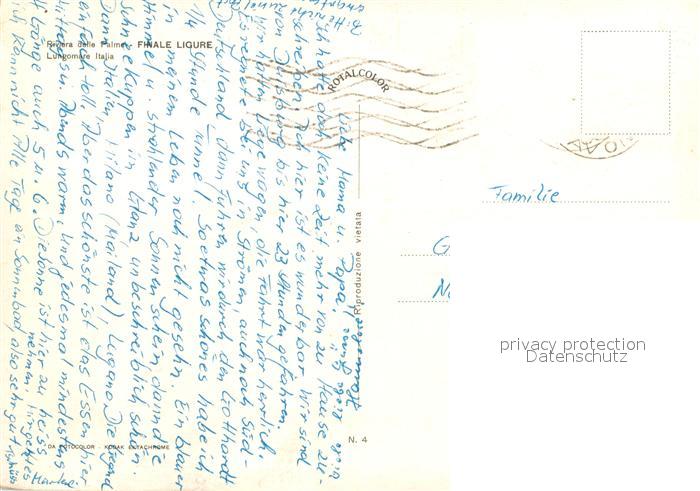 Riviera delle Palme - FINALE LIGURE
Lungomare Italia
ROTALCOLOR
Riproduzione vietata
DA FOTOCOLOR - KODAK EKTACHROME
N. 4
Familie
G
N
privacy protection
Datenschutz
Liebe Mama u. Papa!
Ich hatte doch keine Zeit mehr von zu Hause zu
schreiben. Ach hier ist es wunderbar. Wir sind
von Duisburg bis hier 23 Stunden gefahren.
Wir hatten Liegewagen, die Fahrt war herrlich.
Es regnete in Strömen, auch noch Süd-
Deutschland. Dann fuhren wir durch den Gotthardt
1/4 Stunde Tunnel. Soetwas schönes habe ich
in meinem Leben noch nicht gesehn. Ein blauer
Himmel u. strahlender Sonnenschein dann die
Schneekuppen in Glanz unbeschreiblich schön.
Dann Italien, Milano (Mailand), Lugano. Die Gegend
einfach toll. Aber das schönste ist das Essen hier
Abends warm, und jedesmal mindestens
Gänge auch 5 u. 6. Die Sonne ist hier zu heiss
ich kann nicht alle Tage an Sonnenbad, also sehr gut
nehmen.
Tschüss
Hannelore